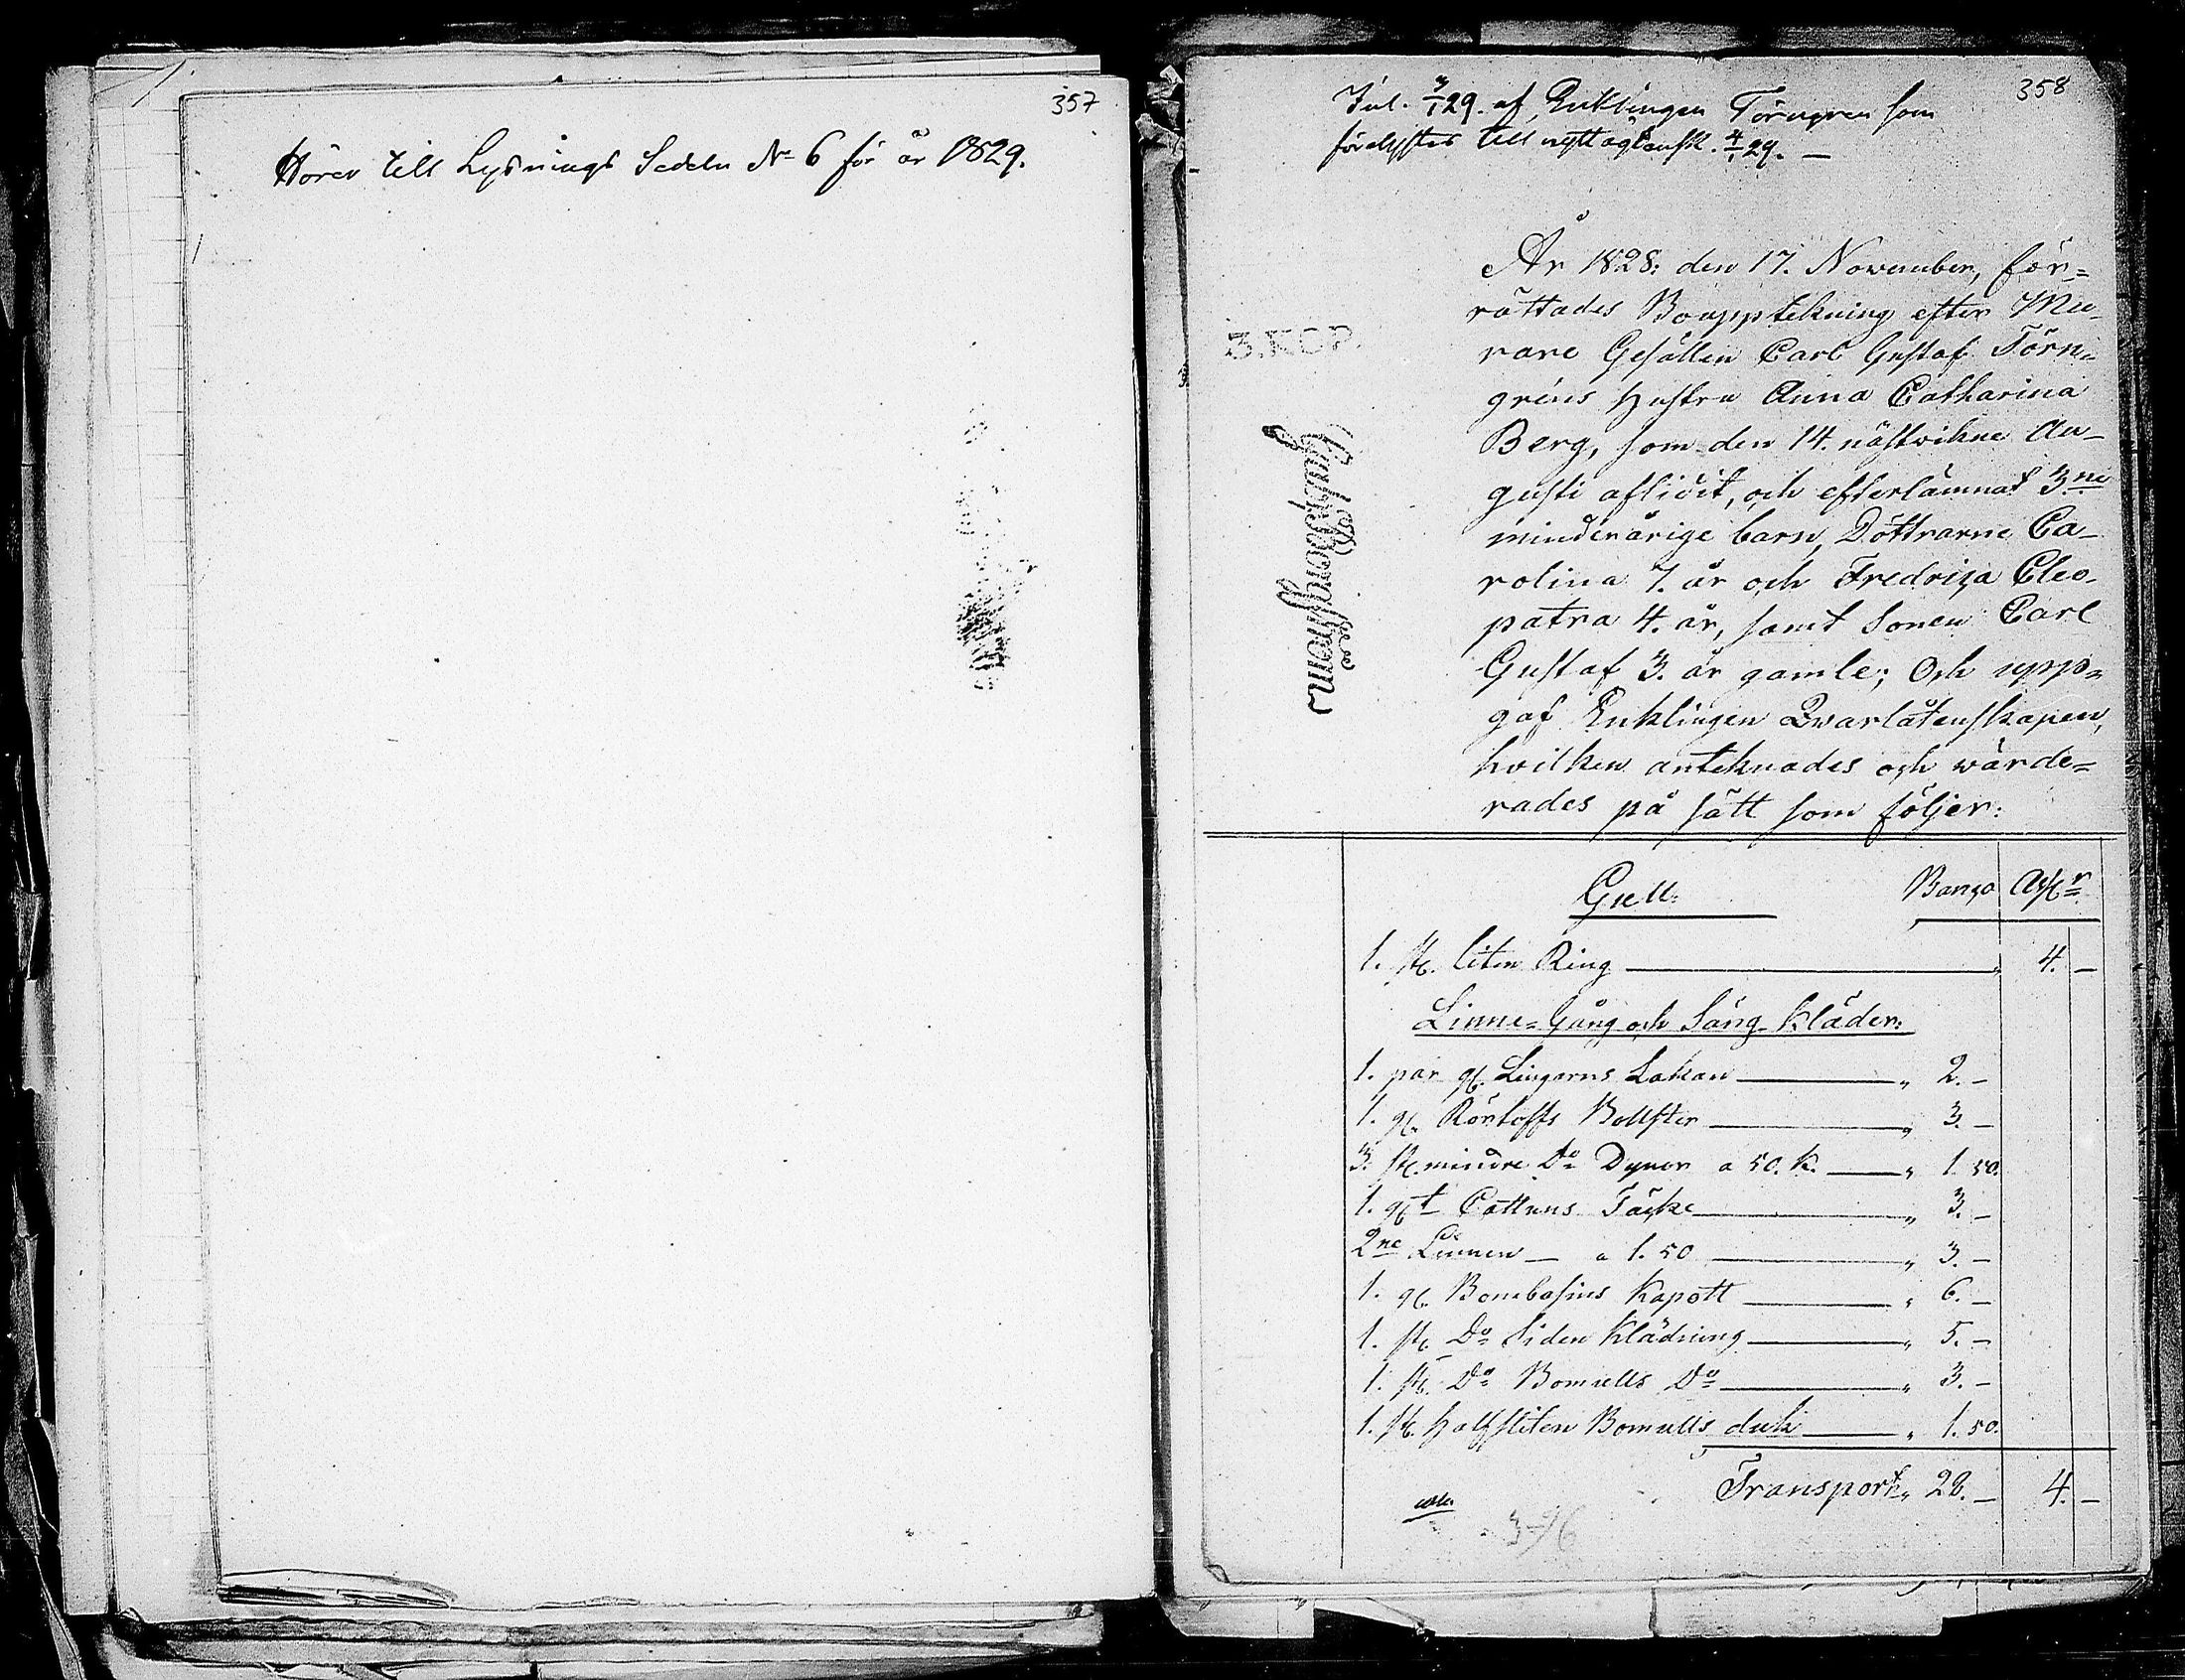 357
Hörer till Lysnings Sedeln No 6 för år 1829.
358
Inl. 3/1 29. af Enklingen Törngren som
förelystes till nytt ägtensk. 4/1 29. —
År 1828: den 17. November, för=
rättades Bouppteckning efter Mu-
rare Gesällen Carl Gustaf Törn=
gréns Hustru Anna Catharina
Berg, som den 14. nästvikne Au-
gusti aflidit, och efterlämnat 3ne
minderårige barn, Döttrarne Ca-
rolina 7. år och Fredrica Cleo-
patra 4. år, samt Sonen Carl
Gustaf 3. år gamle; Och upp=
gaf Enklingen Qvarlåtenskapen,
hvilken antecknades och wärde=
rades på sätt som följer:
3. KOP.
Gull: Banco Assr
1. st. liten Ring — " 4. —
Linne= Gång och Säng-Kläder:
1. par gl. Lingarns Lakan — " 2. —
1. gl. Bollster — " 3. —
3. st. mindre Do Dynor a 50. k. — " 1. 50.
1. glt Cattuns Täcke — " 3. —
2ne Linnen — a 1. 50 — " 3. —
1. gl. Bombasins Kapott — " 6. —
1. st. Do Siden Klädning — " 5. —
1. st. Do Bomulls Do — " 3. —
1. st. Halfsliten Bomulls duk — " 1. 50.
Transport " 28. — 4. —